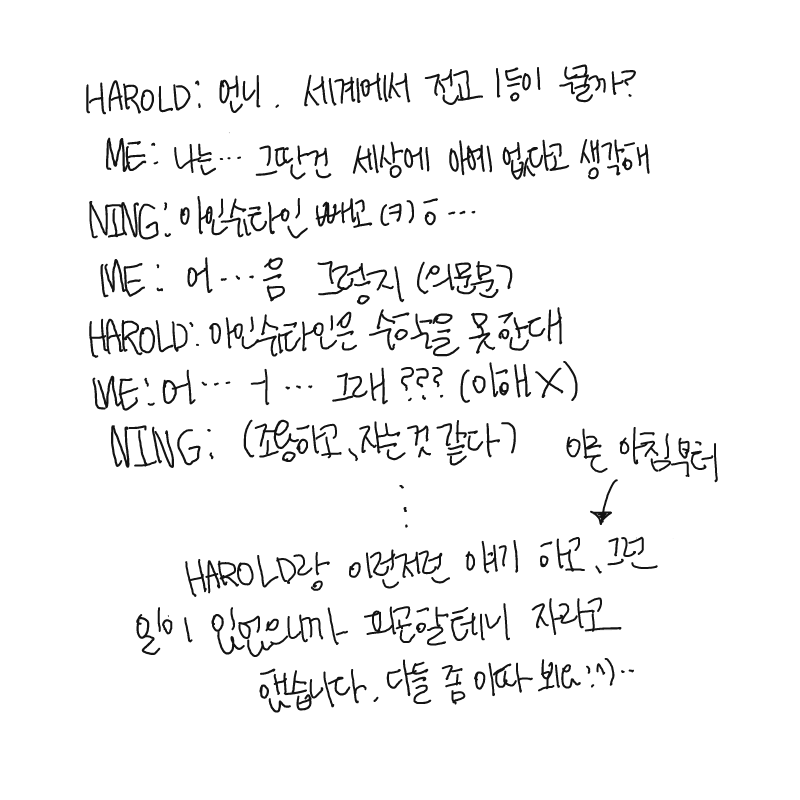 HAROLD: 언니. 세계에서 전교 1등이 누굴까?
ME: 나는... 그딴건 세상에 아예 없다고 생각해
NING: 아인슈타인 빼고 (ㅋ) ㅎ...
ME: 어...음 그렁지 (의문문)
HAROLD: 아인슈타인은 수학을 못한대
ME: 어... ㅓ ... 그래??? (이해X)
NING: (조용하고, 자는 것 같다)
이른 아침부터
HAROLD랑 이런저런 얘기 하고, 그런
일이 있었으니까 피곤할테니 자라고
했습니다. 다들 좀 이따 봬요 :^)..